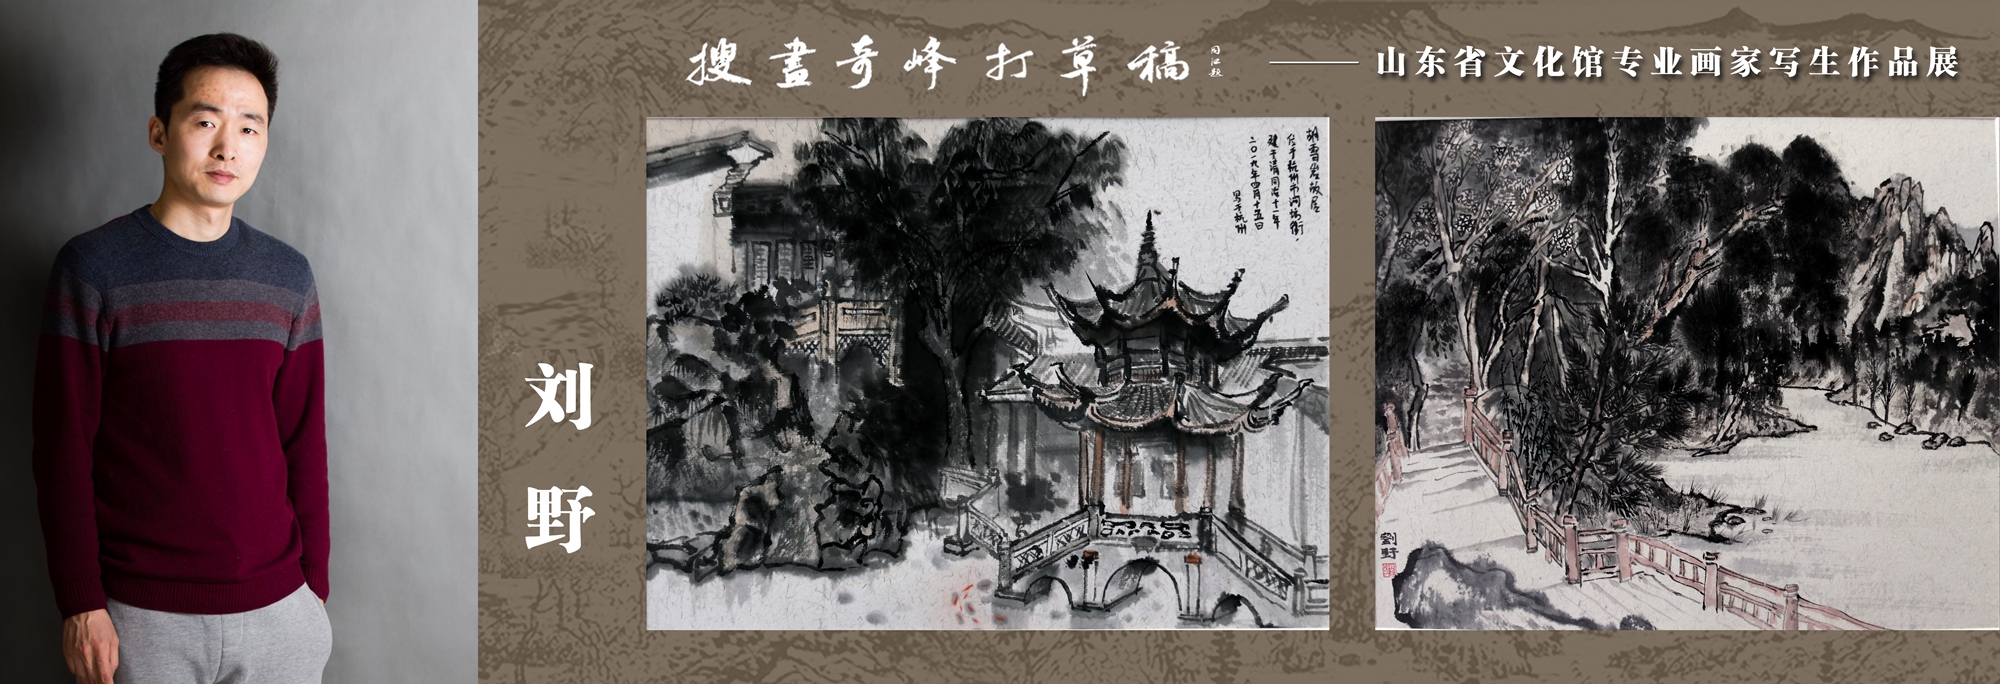 搜盡奇峰打草稿
同江题
山东省文化馆专业画家写生作品展
刘野
胡雪岩故居
位于杭州市河坊街，
建于清同治十一年
二〇一九年四月十五日
写于杭州
劉野